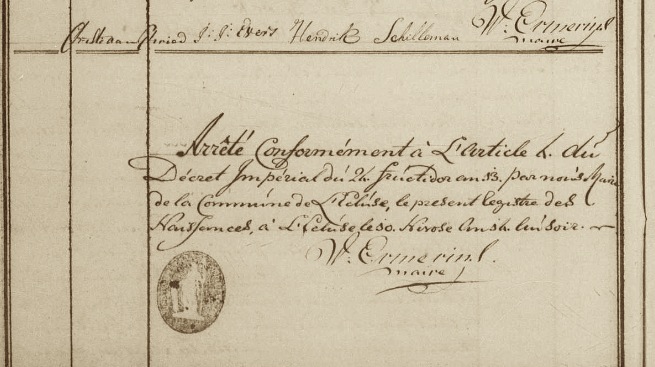 Christiaan Pieriad J: J: Evers Hendrik Schilleman W. Ermerins
maire
Arrêté Conformément à L'article 4. du
Décret Impérial du 24. fructidor an 13. par nous Maire
de la Commune de L'Ecluse, le present registre des
Naissences, à L'Ecluse le 10. Nivose An 14. au soir.
W. Ermerins.
maire